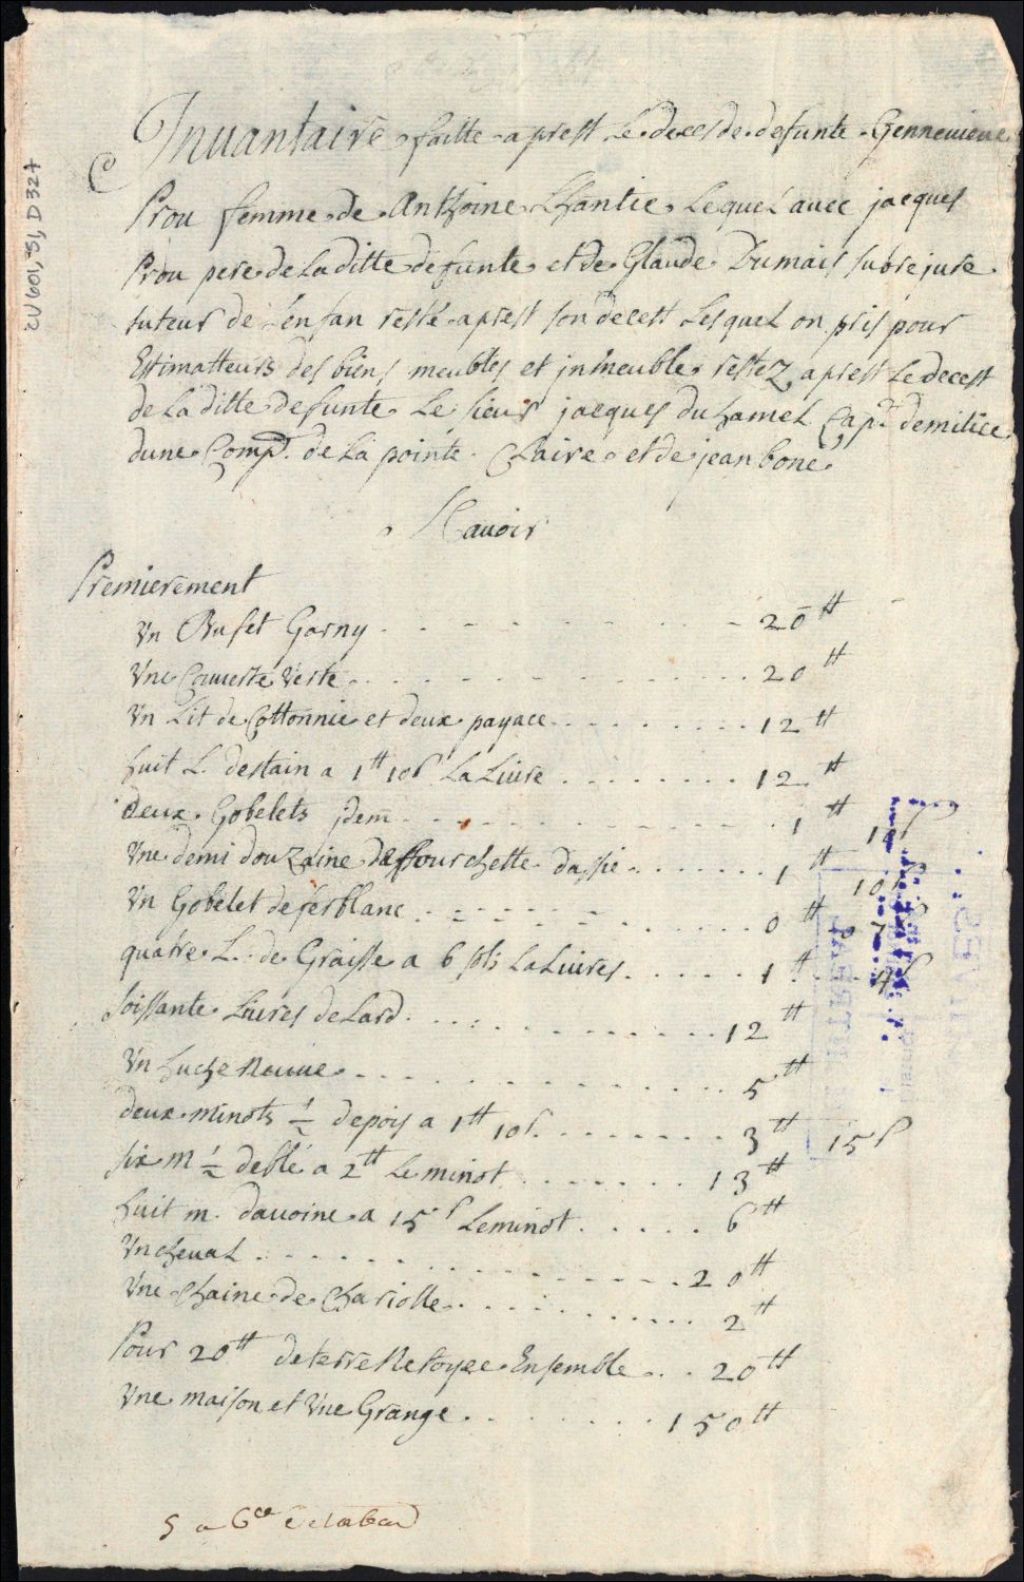 CV601, S1, D327
Inuantaire faitte aprest Le deces de defunte Genneuieue
Prou femme de Anthoine Lhantie Lequel auec jacques
Prou pere de La ditte defunte et de Glaude Dumais subrejure
tuteur de Lenfan resté aprest son decest Lesquel on pris pour
Estimatteurs des biens meubles et jnmeubles restez aprest Le decest
de La ditte defunte Le sieur jacques duhamel Cap.e demilice
dune Comp.e de La pointe Claire et de jean bone
Scauoir
Premierement
Un Bufet Garny 20 ₶
Une Couuerte Verte 20 ₶
Un Lit de Cottonnie et deux payace 12 ₶
huit L. destain a 1₶ 10s La Liure 12 ₶
deux Gobelets jdem 1 ₶ 10s
Une demi douzaine deffourchette dassie 1 ₶ 10s
Un Gobelet deferblanc 0 ₶ 7s
quatre L. de Graisse a 6 sols La Liures 1 ₶ 4s
soissante Liures de Lard 12 ₶
Un huche Neuue 5 ₶
deux minots ½ depois a 1₶ 10s 3 ₶ 15s
six m ½ deblé a 2₶ Le minot 13 ₶
huit m. dauoine a 15s Leminot 6 ₶
Un cheual 20 ₶
Une Chaine de Chariotte 2 ₶
Pour 20₶ de terre Netoyee Ensemble 20 ₶
Une maison et Une Grange 150 ₶